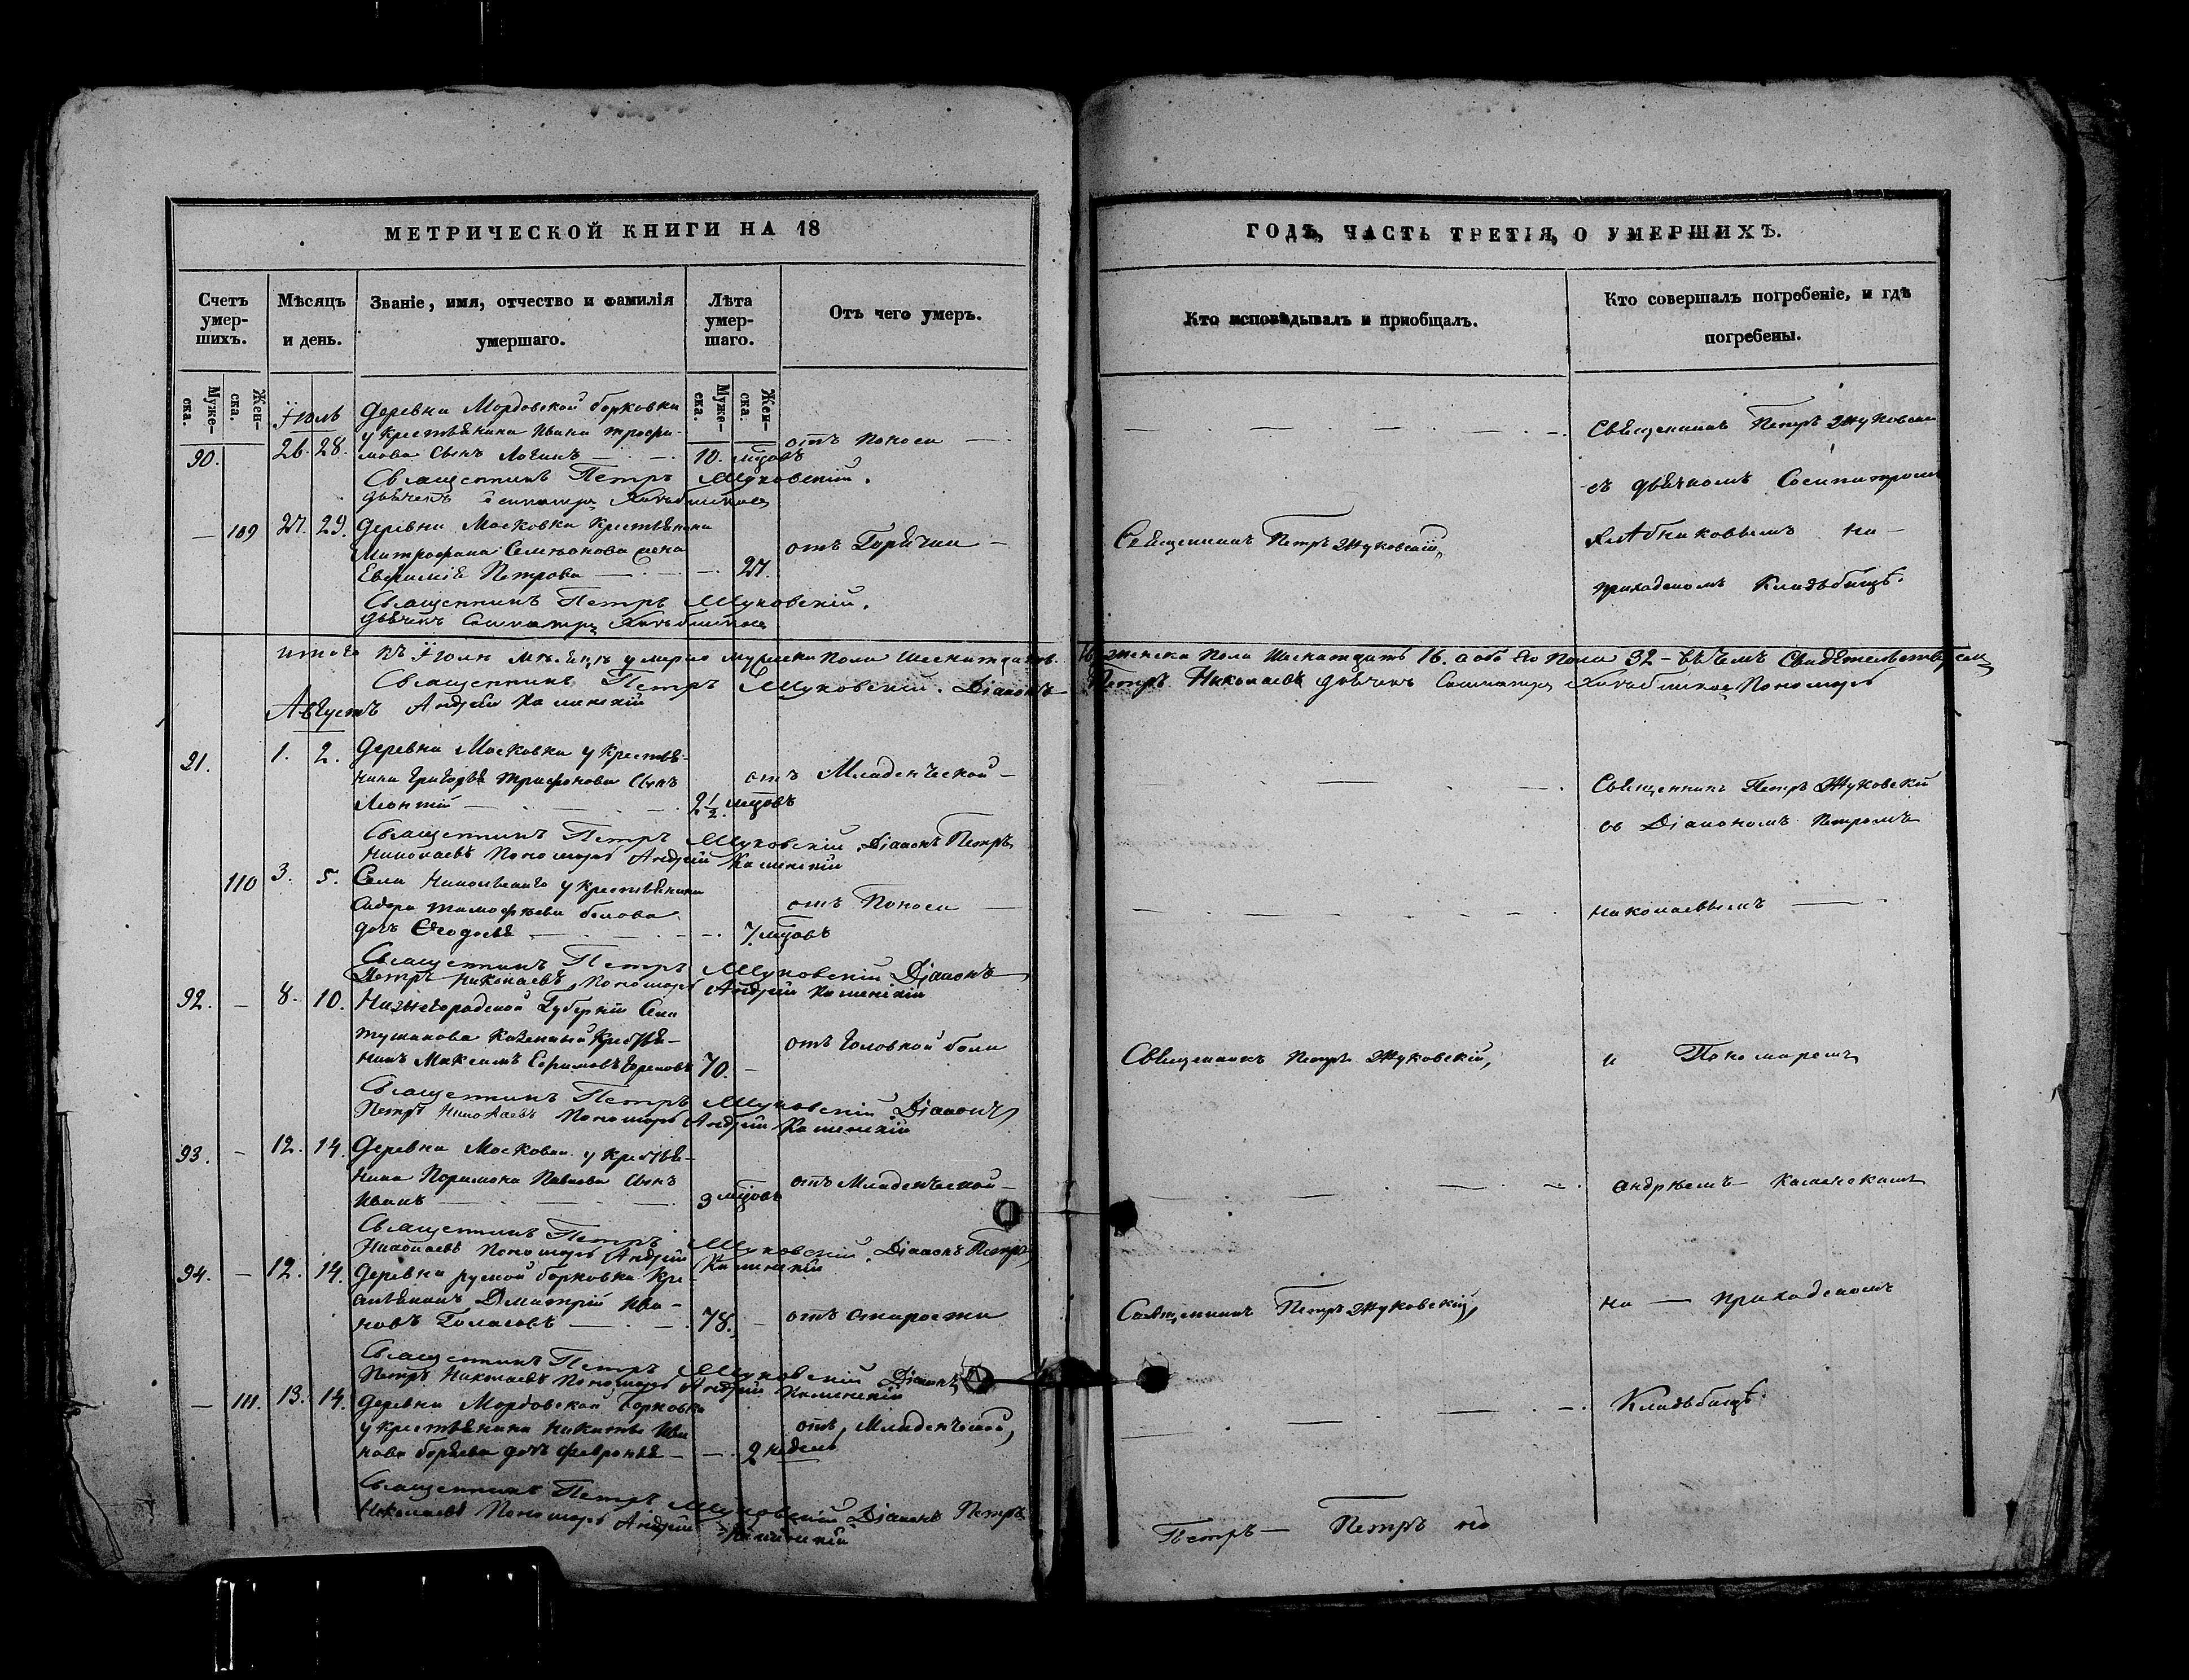 МЕТРИЧЕСКОЙ КНИГИ НА 18
Счетъ умер-шихъ.
Мѣсяцъ и день.
Званіе, имя, отчество и фамилія умершаго.
Лѣта умер-шаго.
Отъ чего умеръ.
Муже-ска.
Жен-ска.
Муже-ска.
Жен-ска.
Іюль
90. 26. 28. Деревни Мордовской борковки
у крестьянина Ивана трофи-
мова сынъ Логинъ 10. мцовъ отъ поноса
Священникъ Петръ Жуковскій.
дьячекъ
109 27. 29. Деревни Московки крестьянина
Митрофана Семіонова жена
Евфимія Петрова 27. отъ Горячки
Священникъ Петръ Жуковскій.
дьячекъ
итого въ Іюлѣ мѣсяцѣ умерло мужеска пола шеснатдать
Священникъ Петръ Жуковскій. Діаконъ
Августъ Андрей Каменскій
91. 1. 2. Деревни Московки у крестья-
нина григорья трифонова сынъ
Леонтій 2½ мцовъ отъ Младенческой
Священникъ Петръ Жуковскій. Діаконъ Петръ
Николаевъ Пономарь Андрей Каменскій
110 3. 5. Села у крестьянина
Сидора тимофеева белова
дочь Єѵодосья 7. мцовъ отъ Поноса
Священникъ Петръ Жуковскій Діаконъ
Петръ Николаевъ, Пономарь Андрей Каменскій
92. 8. 10. Нижегородской Губерніи Села
казенный крестья-
нинъ Максимъ Ефимовъ 70. отъ головной боли
Священникъ Петръ Жуковскій. Діаконъ
Петръ Николаевъ Пономарь Андрей Каменскій
93. 12. 14. Деревни Московки у крестья-
нина Павлова сынъ
Иванъ 9 мцовъ отъ Младенческой
Священникъ Петръ Жуковскій. Діаконъ Петръ
Николаевъ Пономарь Андрей Каменскій
94. 12. 14. Деревни руской борковки кре-
стьянинъ Димитрій Ива-
новъ 78. отъ старости
Священникъ Петръ Жуковскій Діаконъ
Петръ Николаевъ Пономарь Андрей Каменскій
111. 13. 14. Деревни Мордовской борковки
у крестьянина Никиты Ива
нова дочь февронья 2 недель отъ Младенческой,
Священникъ Петръ Жуковскій Діаконъ Петръ
Николаевъ Пономарь Андрей Каменскій
ГОДЪ, ЧАСТЬ ТРЕТІЯ, О УМЕРШИХЪ.
Кто исповѣдывалъ и пріобщалъ.
Кто совершалъ погребеніе, и гдѣ погребены.
Священникъ Петръ Жуковскій
съ дьячкомъ Сосипатромъ
Священникъ Петръ Жуковскій, на
приходскомъ кладьбищѣ.
16. женска пола Шеснатдать 16. обоего Пола 32 въ чемъ свидетельствуемъ
Петръ Николаевъ дьячекъ Пономарь
Священникъ Петръ Жуковскій
съ Діакономъ Петромъ
Николаевымъ
Священникъ Петръ Жуковскій, и Пономаремъ
Андреемъ Каменскимъ
Священникъ Петръ Жуковскій, на приходскомъ
Кладьбищѣ
Петръ Петръ